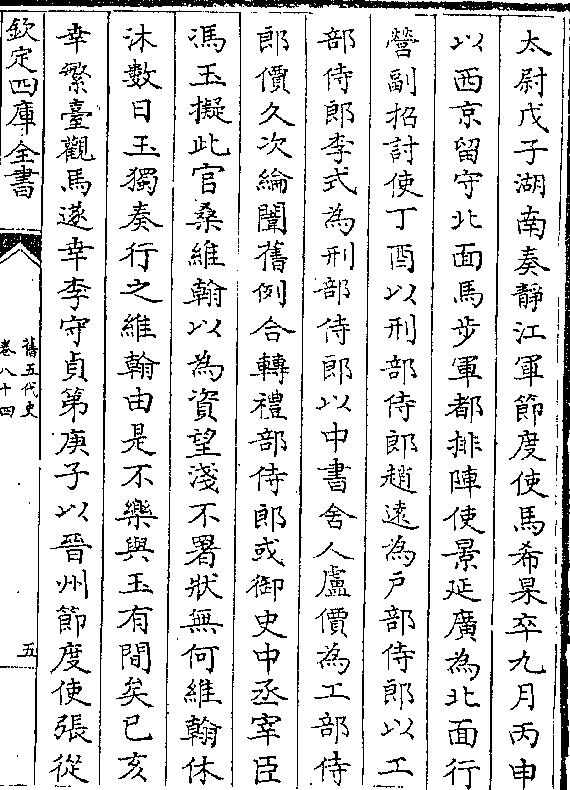 太尉戊子湖南奏靜江軍節度使馬希杲卒九月丙申
以西京留守北面馬步軍都排陣使景延廣為北面行
營副招討使丁酉以刑部侍郎趙遠為戶部侍郎以工
部侍郎李式為刑部侍郎以中書舍人盧價為工部侍
郎價久次綸闈舊例合轉禮部侍郎或御史中丞宰臣
馮玉擬此官桑維翰以為資望淺不署狀無何維翰休
沐數日玉獨奏行之維翰由是不樂與玉有間矣己亥
幸繁臺觀馬遂幸李守貞第庚子以晉州節度使張從
欽定四庫全書
舊五代史
卷八十四
五